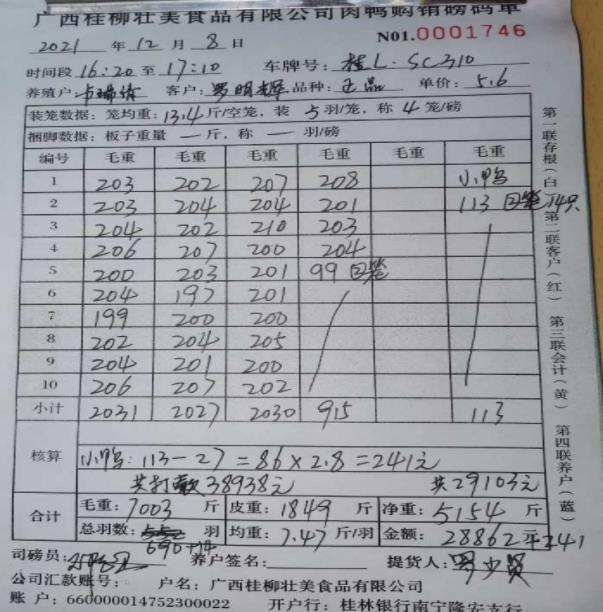 广西桂柳壮美食品有限公司肉鸭购销磅码单
2021 年 12 月 8 日 N01.0001746
时间段 16:20 至 17:10 车牌号: 桂L·SC310
养殖户: 客户: 罗明辉 品种: 正品 单价: 5.6
装笼数据: 笼均重: 13.4 斤/空笼, 装 5 羽/笼, 称 4 笼/磅
捆脚数据: 板子重量 — 斤, 称 — 羽/磅
编号 毛重 毛重 毛重 毛重 毛重 毛重
1 203 202 207 208 小鸭
2 203 204 204 201 113 回笼 14只
3 204 202 210 203
4 206 207 200 204
5 200 203 201 99 回笼
6 204 197 201
7 199 200 200
8 202 204 205
9 204 201 200
10 206 207 202
小计 2031 2027 2030 915 113
核算 小鸭: 113-27=86×2.8=241元
共打款38938元 共29103元
合计 毛重: 7003 斤 皮重: 1849 斤 净重: 5154 斤
总羽数: 690+14 羽 均重: 7.47 斤/羽 金额: 28862 元+241
司磅员: 养户签名: 提货人:
公司汇款账号: 户名: 广西桂柳壮美食品有限公司
账 户: 660000014752300022 开户行: 桂林银行南宁隆安支行
第一联存根(白) 第二联客户(红) 第三联会计(黄) 第四联养户(蓝)